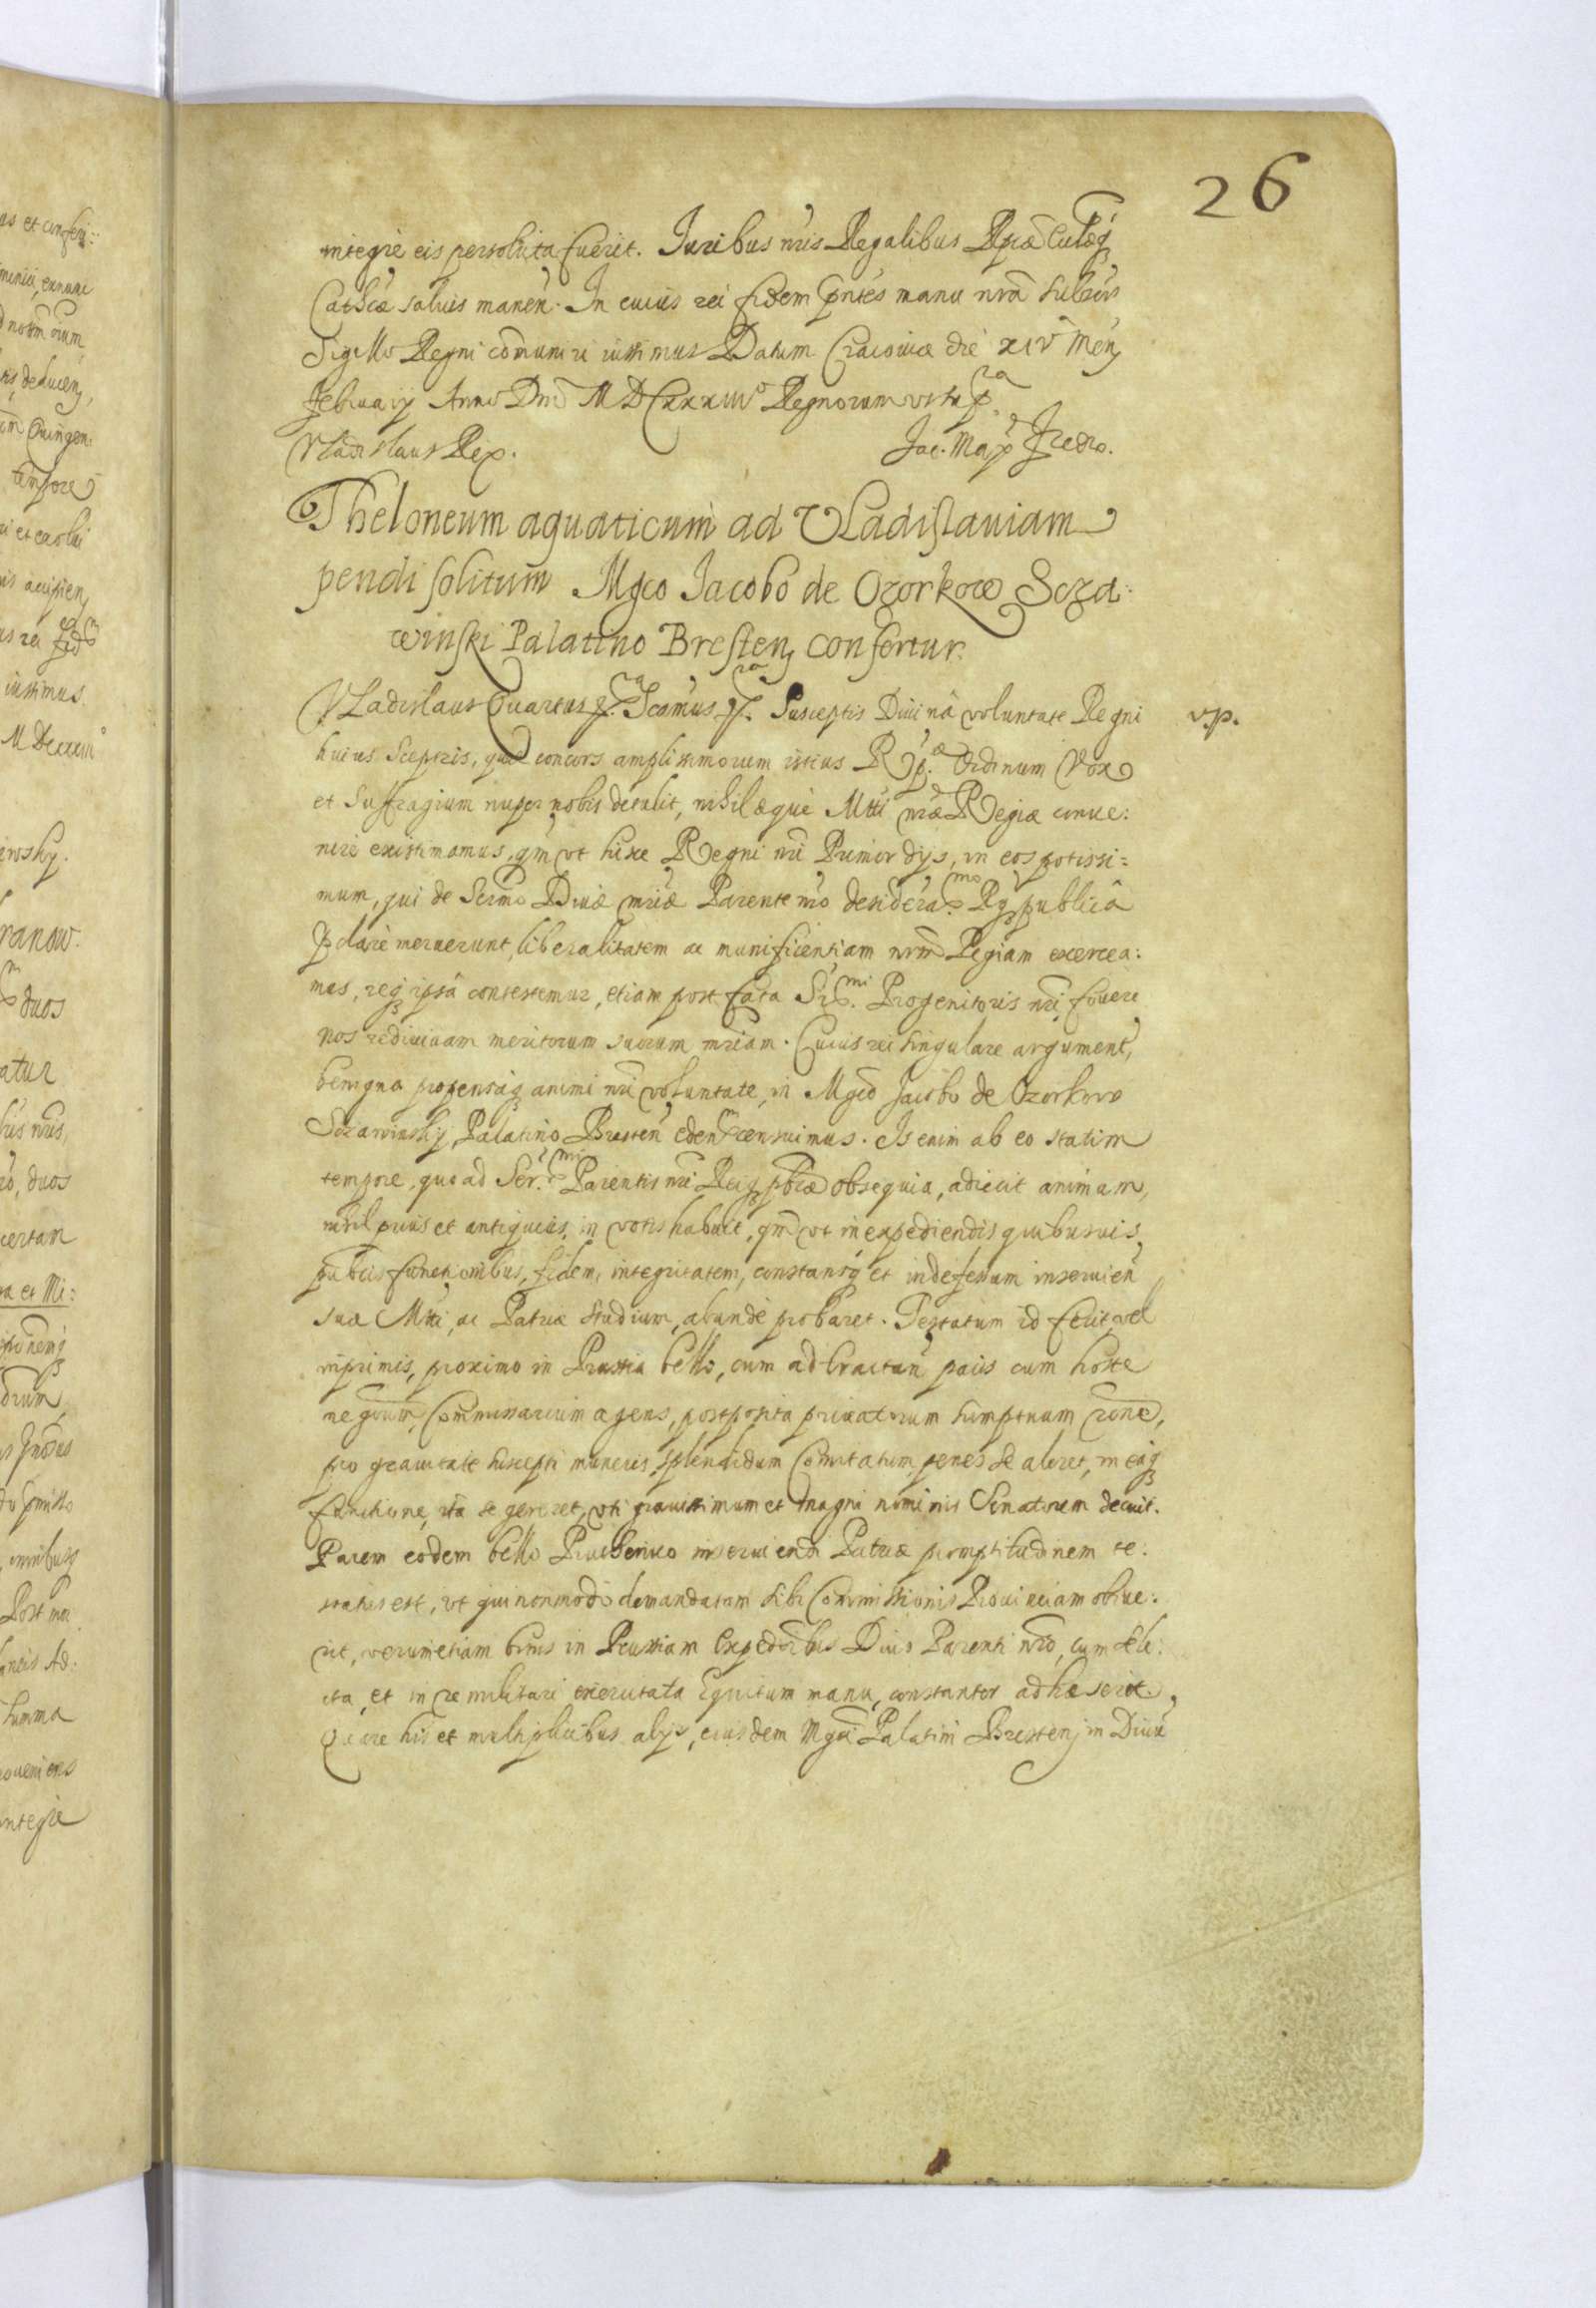 26
integrè eis persoluta fuerit. Juribus nris Regalibus Rpcæ Eccæq
Cathcæ saluis manen. In cuius rei fidem pntes manu nrã subscris
Sigillo Regni cõmuniri iussimus Datum Cracouiæ die XIV Men
Februarij Anno Dni MDCXXXIII° Regnorum vt supra
Vladislaus Rex. Jac. Max Fredro.
Theloneum aquaticum ad Vladislauiam
pendi solitum Mgco Jacobo de Ozorkow Scza:
winski Palatino Bresten confertur.
Vladislaus Quartus Scamus Susceptis Diuinâ voluntate Regni
vp.
huius Sceptris, quæ concors amplissimorum istius Rp. Ordinum Vox
et Suffragium nuper nobis detulit, nihil æque Mtti nræ Regiæ conue:
nire existimamus, qm vt hisce Regni nri Primordijs, in eos potissi=
mum, qui de Sermo Diuæ mriæ Parente nro desideramo Rq publicâ
pclare meruerunt, liberalitatem ac munificientiam nrm Regiam exercea:
mus, req ipsâ contestemur, etiam post fata Sermi Progenitoris nri, fouere
nos rediuiuam meritorum suorum mriam. Cuius rei singulare argument,
benigna propensaq animi nri voluntate, in Mgco Jacobo de Ozorkow
Sczawinskij, Palatino Bresten edendm censuimus. Is enim ab eo statim
tempore, quo ad Sermi Parentis nri Reiq pbcæ obsequia, adiecit animam,
nihil prius et antiquius, in votis habuit, qm vt in expediendis quibusuis
pubcis functionibus, fidem, integritatem, constantiq et indefessum inseruien
suæ Mtti, ac Patriæ studium, abundè probaret. Testatum id fecit, vel
inprimis, proximo in Prussia bello, cum ad tractan pacis cum hoste
negoium, Commissarium agens, postposita priuatorum sumptuum rone,
pro grauitate suscepti muneris, splendidum Comitatum, penes se aleret, in eaq
functione, ita se gereret, vti grauissimum et magni nominis Senatorem decuit.
Parem eodem bello Pruthenico inseruiendi Patriæ promptitudinem te:
status est, vt qui non modo demandatam sibi Commissionis Prouinciam obiue:
rit, verum etiam binis in Prussiam Expedonibus Diuo Parenti nro, cum sele:
cta, et in re militari exercitata Equitum manu, constanter adhæserit.
Quare his et multiplicibus alijs, eiusdem Mgci Palatini Bresten in Diuũ